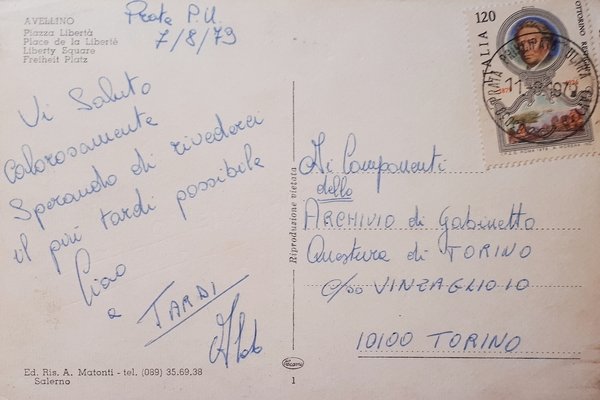 AVELLINO
Piazza Libertà
Place de la Liberté
Liberty Square
Freiheit Platz
Prata P.U.
7/8/79
Vi Saluto
Calorosamente
Sperando di rivederci
il più tardi possibile
Ciao
a TARDI
Aldo
Ed. Ris. A. Matonti - tel. (089) 35.69.38
Salerno
Riproduzione vietata
1
120
ITALIA
OTTORINO RESPIGHI
Ai Componenti
dello
ARCHIVIO di Gabinetto
Questura di TORINO
c/so VINZAGLIO 10
10100 TORINO